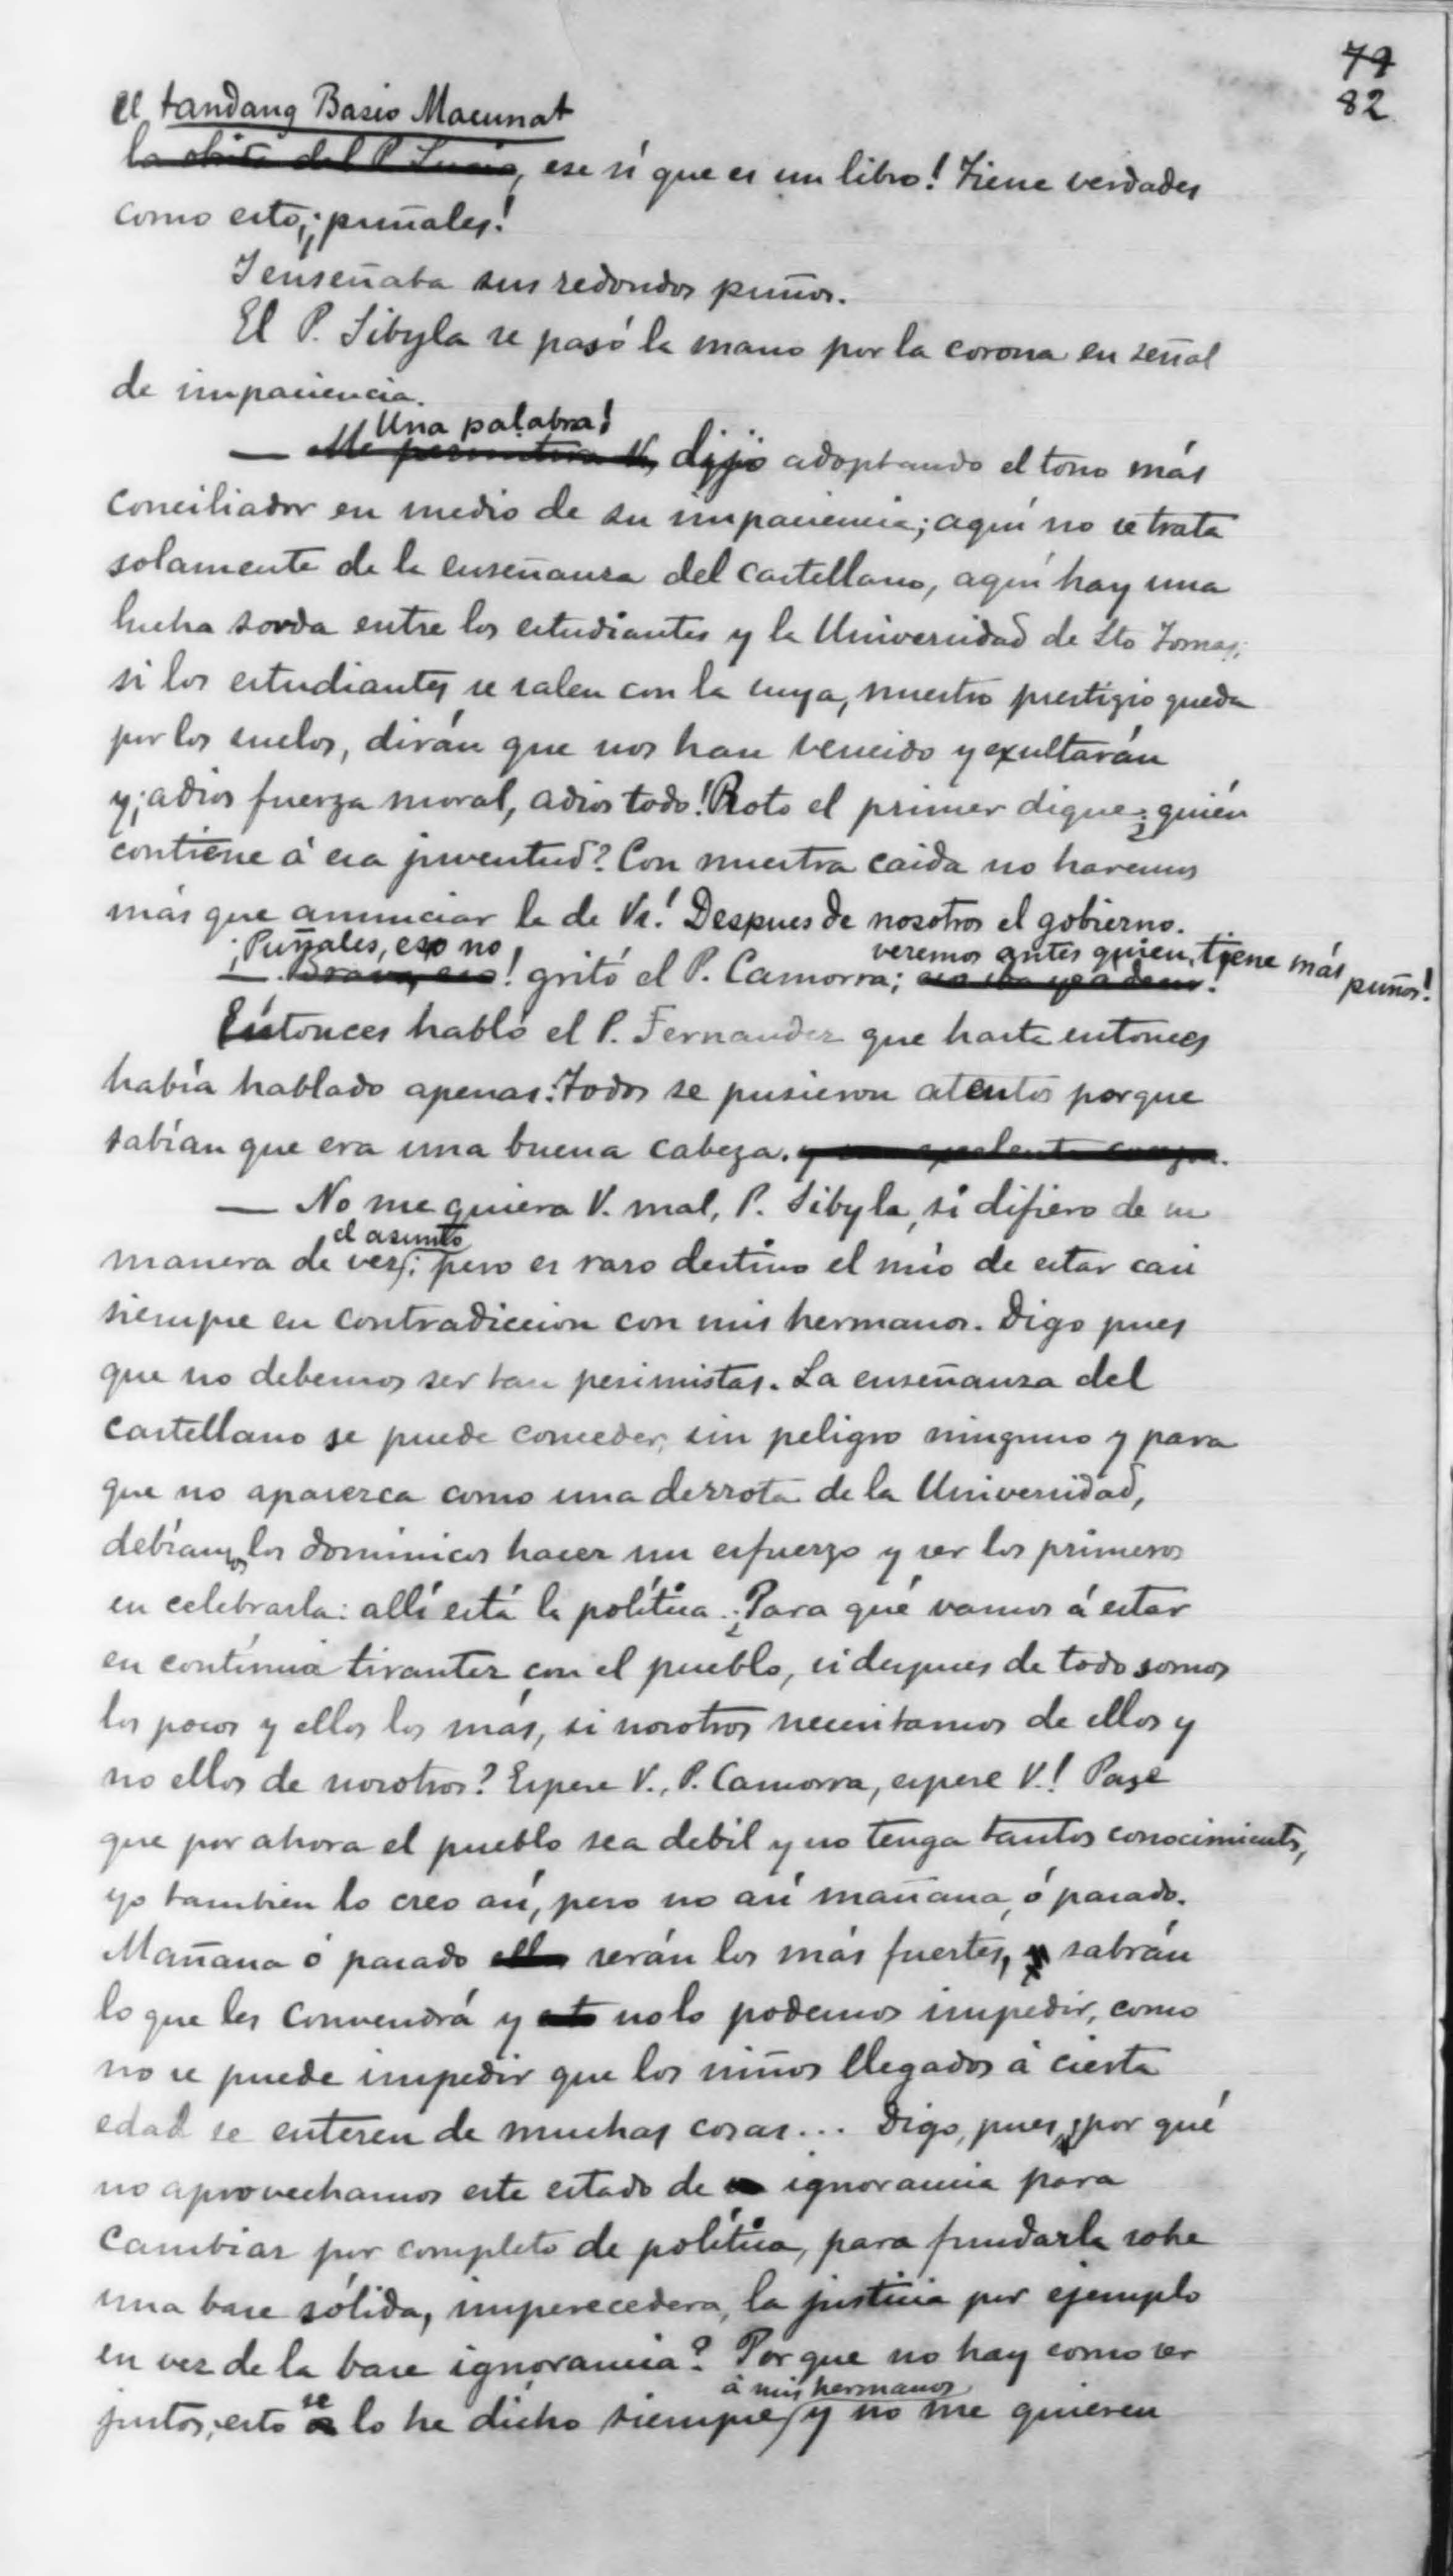 79
82
el tandang Basio Macunat
la obrita del P. Lucio, ese sí que es un libro! Tiene verdades
como esto, ¡puñales!
Y enseñaba sus redondos puños.
El P. Sibyla se pasó la mano por la corona en señal
de impaciencia.
Una palabra!
— Me permitirá V, dijo adoptando el tono más
conciliador en medio de su impaciencia; aquí no se trata
solamente de la enseñanza del castellano, aquí hay una
lucha sorda entre los estudiantes y la Universidad de Sto Tomas;
si los estudiantes se salen con la suya, nuestro prestigio queda
por los suelos, dirán que nos han vencido y exultarán
y ¡adios fuerza moral, adios todo! Roto el primer dique ¿quién
contiene á esa juventud? Con nuestra caida no haremos
más que anunciar la de Vs.! Despues de nosotros el gobierno.
¡Puñales, eso no veremos antes quien tiene más puños!
— Bravo, eso! gritó el P. Camorra; eso iba yo a decir!
Entonces habló el P. Fernandez que hasta entonces
había hablado apenas. Todos se pusieron atentos porque
sabían que era una buena cabeza. y un excelente corazon.
— No me quiera V. mal, P. Sibyla, si difiero de su
el asunto
manera de ver; pero es raro destino el mío de estar casi
siempre en contradiccion con mis hermanos. Digo pues
que no debemos ser tan pesimistas. La enseñanza del
castellano se puede conceder, sin peligro ninguno y para
que no aparezca como una derrota de la Universidad,
debíamos los dominicos hacer un esfuerzo y ser los primeros
en celebrarla: allí está la política. ¿Para qué vamos á estar
en contínua tirantez con el pueblo, si despues de todo somos
los pocos y ellos los más, si nosotros necesitamos de ellos y
no ellos de nosotros? Espere V., P. Camorra, espere V.! Pase
que por ahora el pueblo sea debil y no tenga tantos conocimientos,
yo tambien lo creo así, pero no así mañana, ó pasado.
Mañana ó pasado ellos serán los más fuertes, y sabrán
lo que les convendrá y esto no lo podemos impedir, como
no se puede impedir que los niños llegados á cierta
edad se enteren de muchas cosas... Digo, pues, ¿por qué
no aprovechamos este estado de ignorancia para
cambiar por completo de política, para fundarla sobre
una base sólida, imperecedera, la justicia por ejemplo
en vez de la base ignorancia? Porque no hay como ser
se á mis hermanos
justos, esto lo he dicho siempre y no me quieren